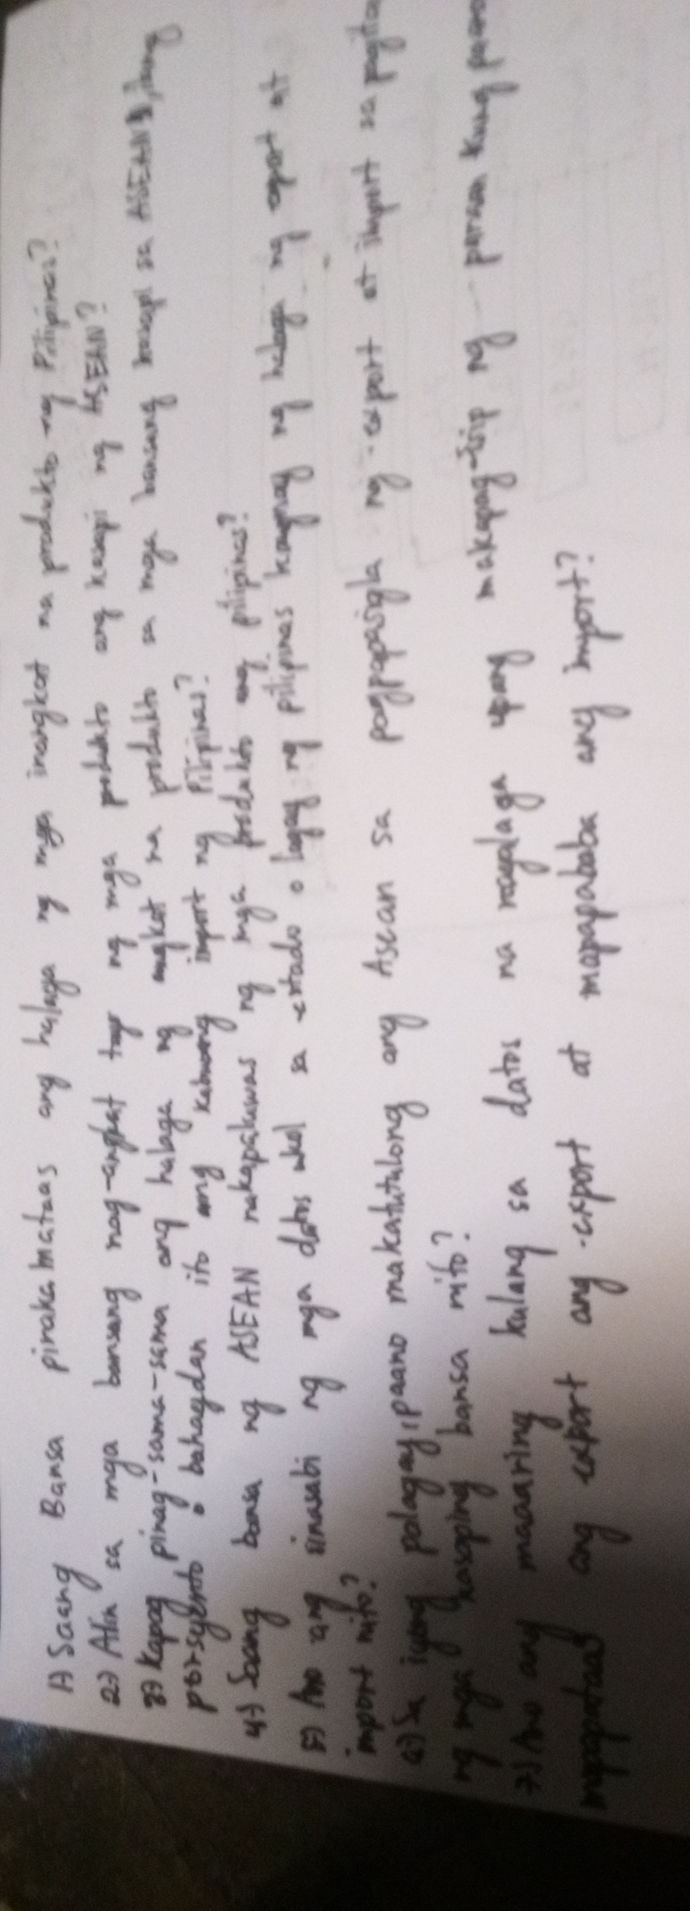 1) Saang Bansa pinakamataas ang halaga ng mga inangkat na produkto ng Pilipinas?
2) Alin sa mga bansang nag-angkat ng mga produkto ang kasapi ng ASEAN?
3) Kapag pinag-sama-sama ang halaga ng angkat na produkto sa mga bansang kasapi sa ASEAN, ilang
porsyento o bahagdan ito ang kabuoang import ng Pilipinas?
4) Saang bansa ng ASEAN nakapaluwas ng mga produkto ang pilipinas?
5) Ano ang sinasabi ng mga datos ukol sa estado o lagay ng pilipinas kaugnay ng halaga ng export at
import nito?
6) Sa iyong palagay, paano makatutulong ang Asean sa pagpapasigla ng export at import sa
ng mga kasaping bansa nito?
7) Ano ang maaaring kulang sa datos na nawalaga upang makapag-isip ng paraan kung paano
mapapataas ang export ang export at mapapababa ang import?